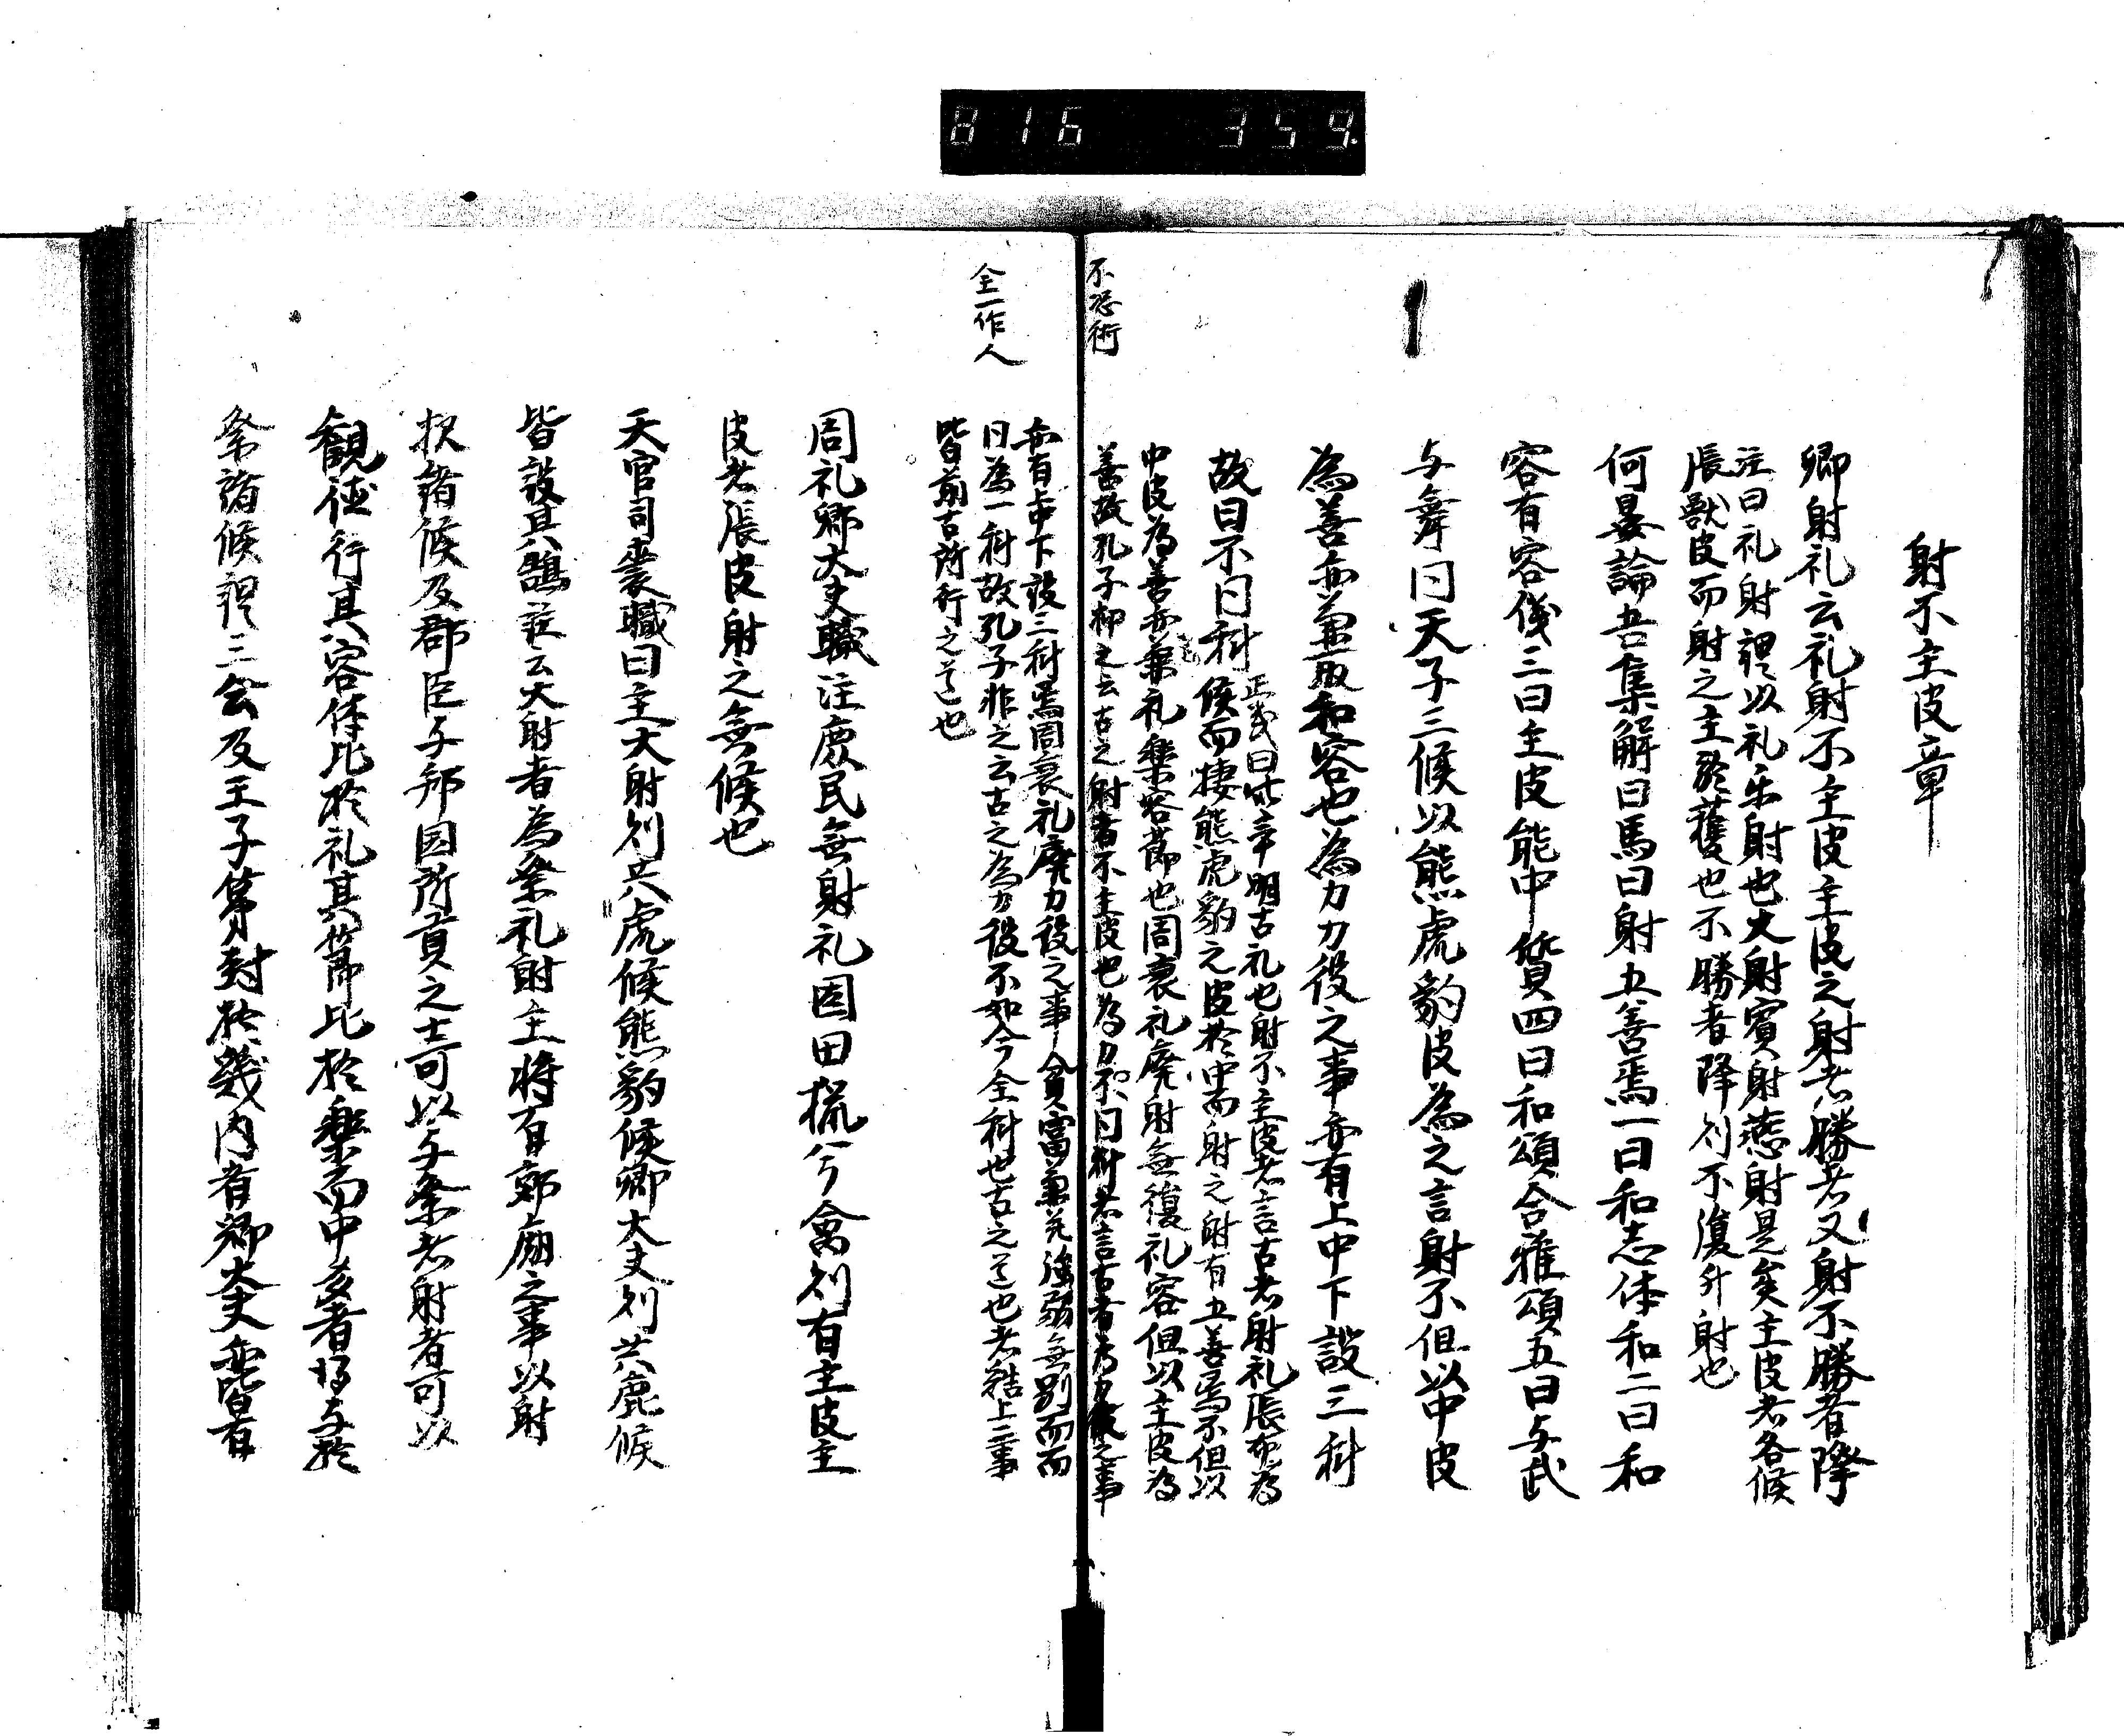 816 359
射不主皮章
郷射礼云礼射不主皮主皮之射者勝者又射不勝者降
注曰礼射謂以礼乐射也大射賓射燕射是矣主皮者各候
張獣皮而射之主於獲也不勝者降則不復升射也
何晏論吾集解曰馬曰射五善焉一曰和志体和二曰和
容有容儀三曰主皮能中質四曰和頌合雅頌五曰与武
与舞同天子三候以熊虎豹皮為之言射不但以中皮
為善亦兼取和容也為力力役之事亦有上中下設三科
故曰不同科
正義曰此章明古礼也射不主皮者言古者射礼張布為
候而棲熊虎豹之皮於中而射之射有五善焉不但以
中皮為善亦兼礼樂容節也周衰礼廃射無復礼容但以主皮為
善故孔子抑之云古之射者不主皮也為力不同科者言古者為力役之事
不忍術
亦有上中下設三科焉周衰礼廃力役之事貧富兼并強弱無別而而
同為一科故孔子非之云古之為力役不如今全科也古之道也者結上二事
皆前古所行之道也
全一作人
周礼郷大夫職注庶民無射礼因田猟分禽則有主皮主
皮者張皮射之無候也
天官司裘職曰王大射則共虎候熊豹候卿大夫則共麋候
皆設其鵠注云大射者為祭礼射王将有郊廟之事以射
択諸候及郡臣与邦国所貢之士可以与祭者射者可以
観徳行其容体比於礼其節比於樂而中多者得与於
祭諸候謂三公及王子弟封於畿内者卿大夫亦皆有